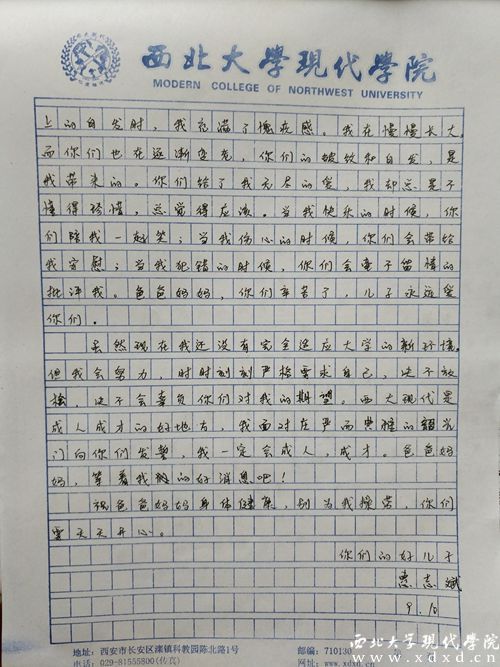 西北大學現代學院
MODERN COLLEGE OF NORTHWEST UNIVERSITY
上的白发时，我充满了愧疚感。我在慢慢长大，
而你们也在逐渐变老，你们的皱纹和白发，是
我带来的。你们给了我无尽的爱，我却总是不
懂得珍惜，总觉得应该。当我快乐的时候，你
们陪我一起笑；当我伤心的时候，你们会带给
我安慰；当我犯错的时候，你们会毫不留情的
批评我。爸爸妈妈，你们辛苦了，儿子永远爱
你们。
虽然现在我还没有完全适应大学的新环境，
但我会努力，时时刻刻严格要求自己，决不放
松，决不会辜负你们对我的期望。西大现代是
成人成才的好地方，我面对庄严而典雅的
门向你们发誓，我一定会成人，成才。爸爸妈
妈，等着我的好消息吧！
祝爸爸妈妈身体健康，别为我操劳，你们
要天天开心。
你们的好儿子
惠志斌
9.10
地址：西安市长安区滦镇科教园陈北路1号
电话：029-81555800(传真)
邮编：71013
网址：www.xdxd.cn
西北大学现代学院
www.xdxd.cn